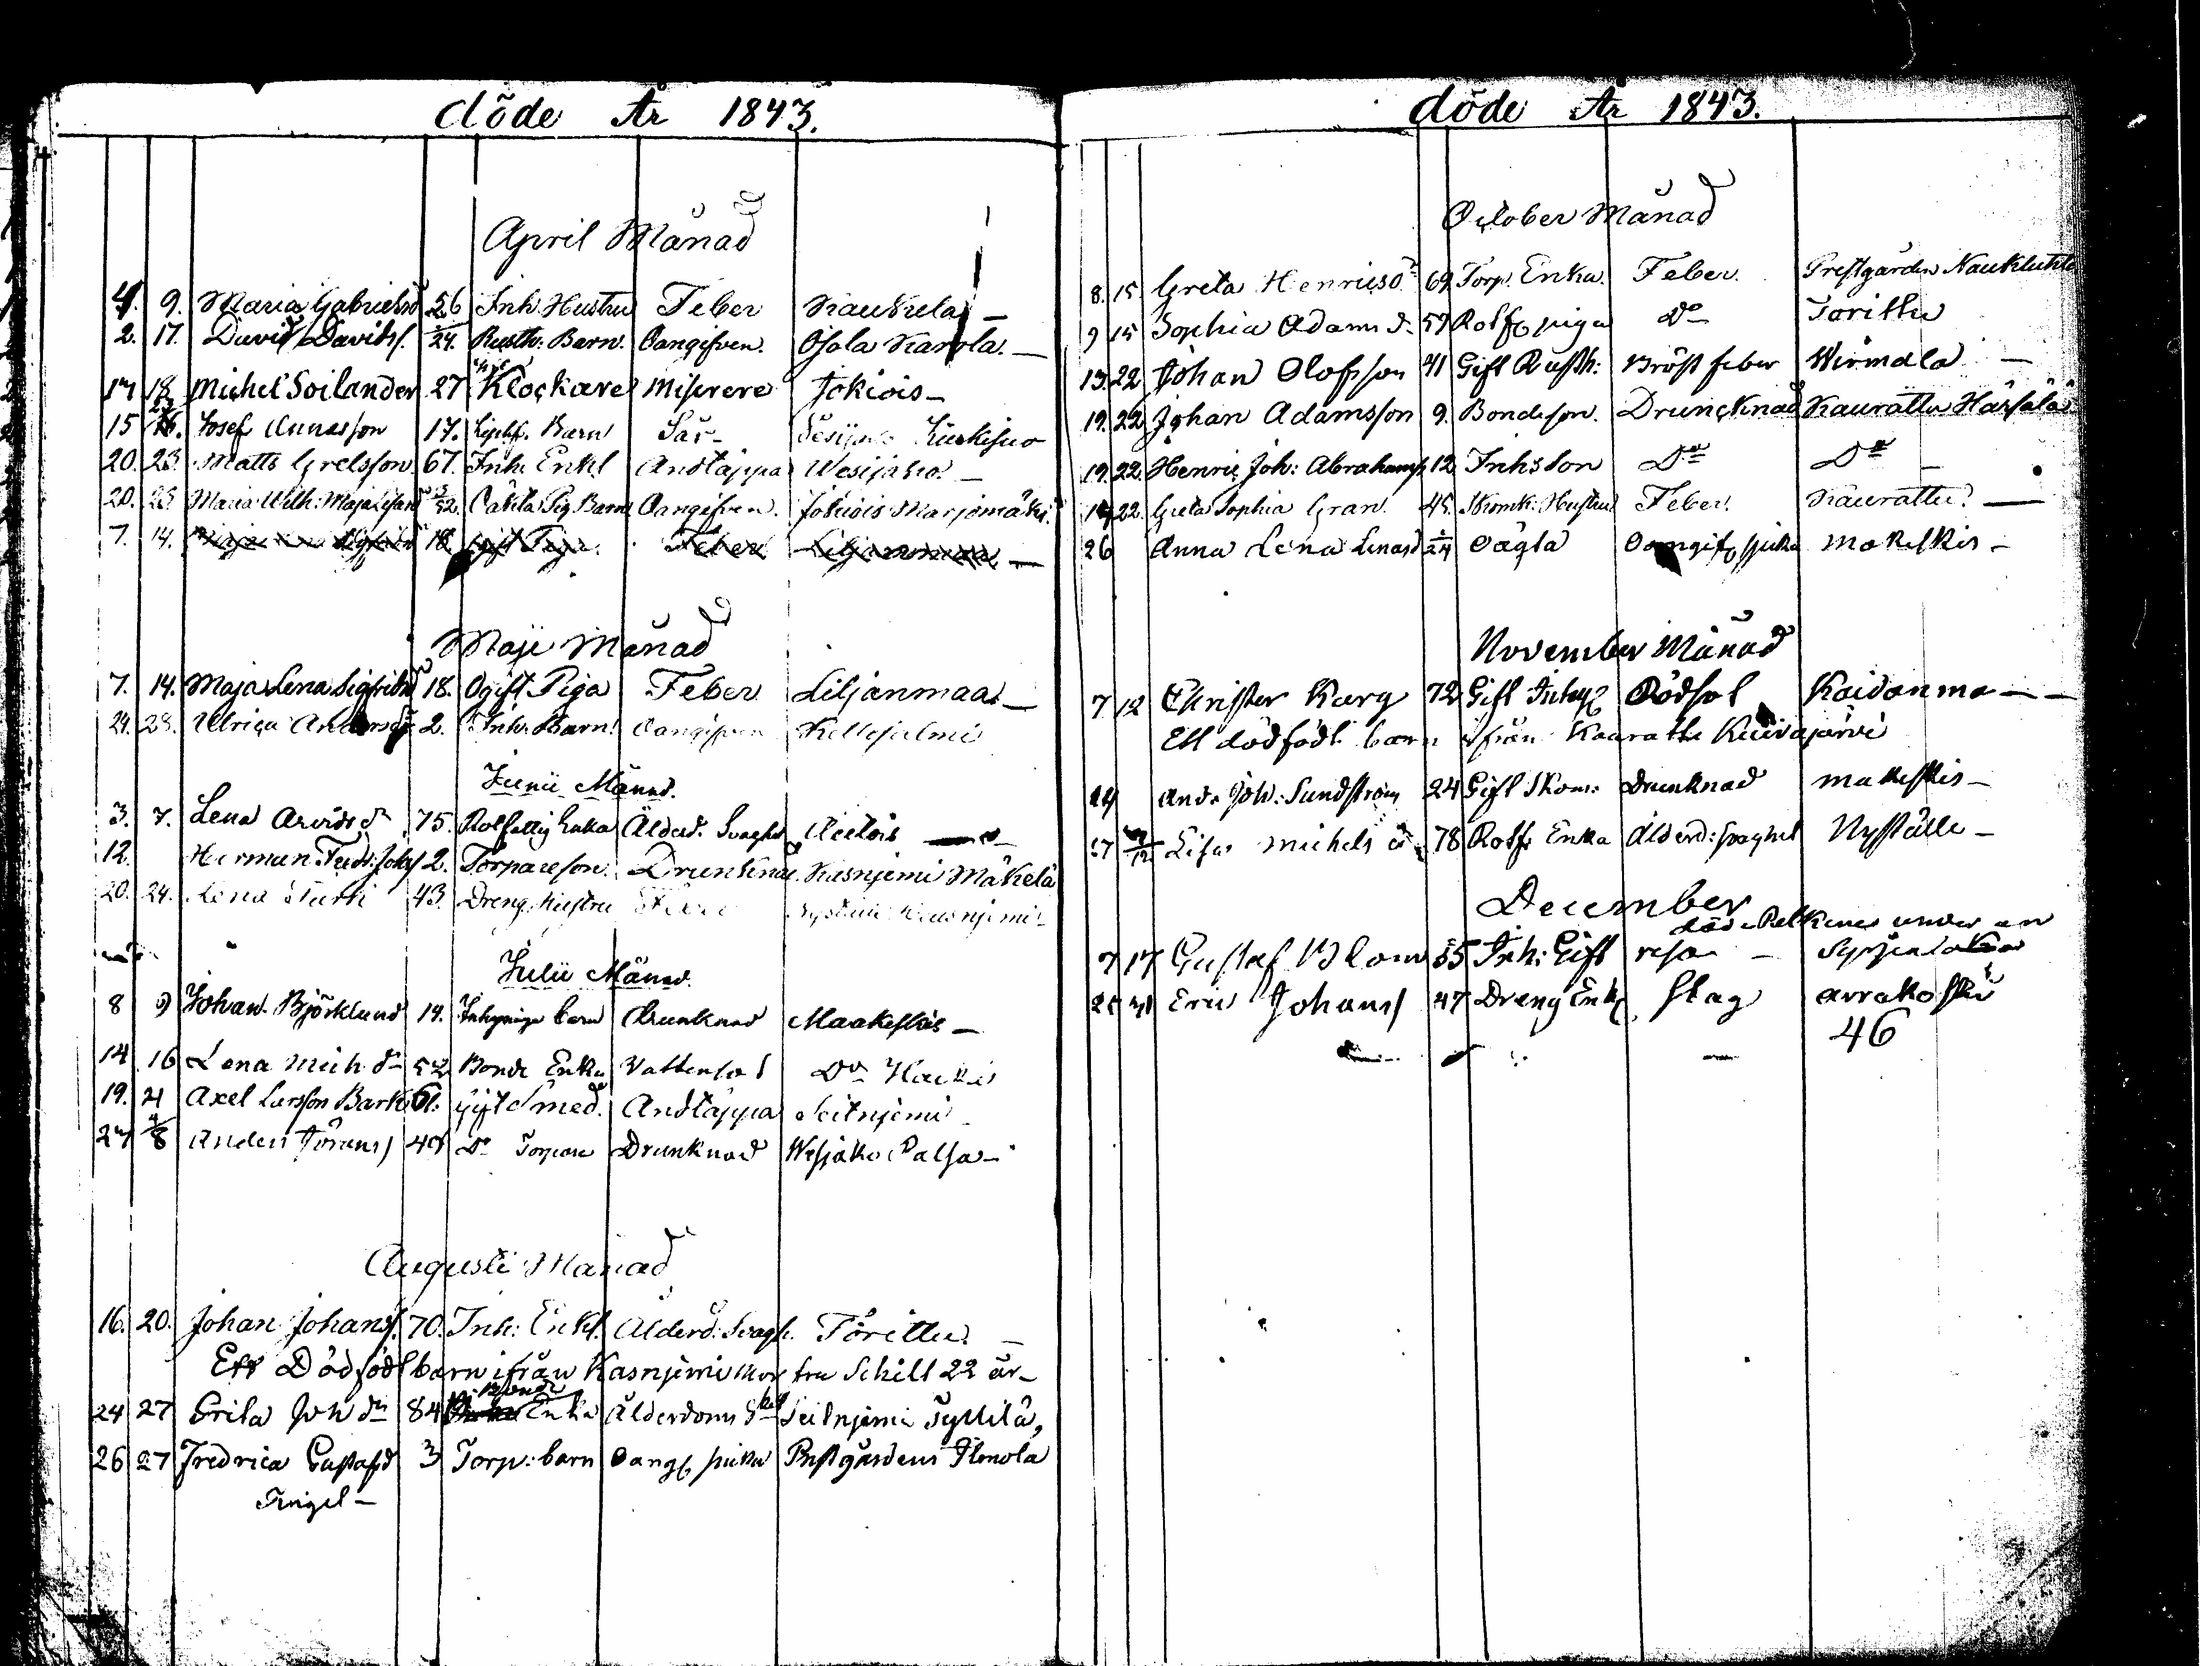 döde År 1843.
April Månad
4. 9. Maria Gabrielsdr 56 Inh. Hustru Feber Naukela —
2. 17. David Davidss. 24. Rusth. Barn. Oangifven. Ojala Karola. —
17 18 Michel Soilander 27 Klockare Miserere Jokiois —
15 16. Josef Annasson 17. Barn Sår —
20. 23. Matts Grelsson 67. Inh. Enkl Andtäppa Wesijako. —
20. 23. Maria Wilh: Maja Lisasdr 3/52. Oäkta Pig Barn Oangifven. Jokiois Marjomäki.
7. 14. 18 Feber Liljanmaa —
Maji Månad
7. 14. Maja Lena Sigfridsdr 18. Ogift Piga Feber Liljanmaa —
24. 28. Ulrica Andersdr 2. Inh. Barn Oangifven Kellosalmi
Junii Månad.
3. 7. Lena Arvidsdr 75. Rotfattig Enka Ålderd. Svaghet —
12. Herman Fredr: Johss 2. Torpareson. Drunknad. Kasnjemi Mäkelä
20. 24. Lena Turki 43. Dreng Hustru Kasnjemi
Julii Månad.
8 9 Johan Björklund 14. Inhysinge barn Drunknad Maakeskis —
14 16 Lena Mich dr 52 Bonde Enka Vattensot Do
19. 21 Axel Larsson Bark 61. Gift Smed. Andtäppa Seitnjemi
27 1/8 Anders Jörans. 49 Do Torpare Drunknad Wesjako Palsa —
Augusti Månad
16. 20. Johan Johanss. 70. Inh: Enkl. Ålderd: Svagh. Torittu. —
Ett Dödfödt barn ifrån Kasnjemi Mor fru Schilt 22 år —
24 27 Grita Joh dr 84 Bonde Enka Ålderdoms Seitnjemi Tyllilä,
26 27 Fredrica Gustafsd 3 Torp: barn Oangf sjuka Prestgårdens Ilmola
Tingel —
döde År 1843.
October Månad
8. 15 Greta Henricsdr 69. Torp. Enka. Feber. Prestgården
9 15 Sophia Adamsdr 59 Rotf piga Do Torittu
13. 22 Johan Olofsson 41 Gift Rusth: Bröst feber Wirmala —
19. 22 Johan Adamsson 9. Bondeson. Drunknad Kaurattu Härsälä
19. 22. Henric Joh: Abrahamss 12 Inhs Son Do Do —
14 22. Greta Sophia Gran. 45. Skomk: Hustru Feber. Kaurattu. —
26 Anna Lena Lenasdr 1/24 Oägta Oangif sjuka Makeskis —
November Månad
7 12 Christer Karg 72 Gift Inhys Rödsot Kaidanma —
Ett dödfödt barn ifrån Kaurattu Kuivajärvi
And. Joh: Sundström 24 Gift Skom: Drunknad Makeskis —
27 Lisa Michels dr 78 Rotf: Enka Ålderd: svaghet Nyställe —
December
död i Pelkene under en
7 17 Gustaf Blom 55 Inh: Gift resa —
25 31 Eric Johanss 47 Dreng Enkl Slag Arrakoski
46